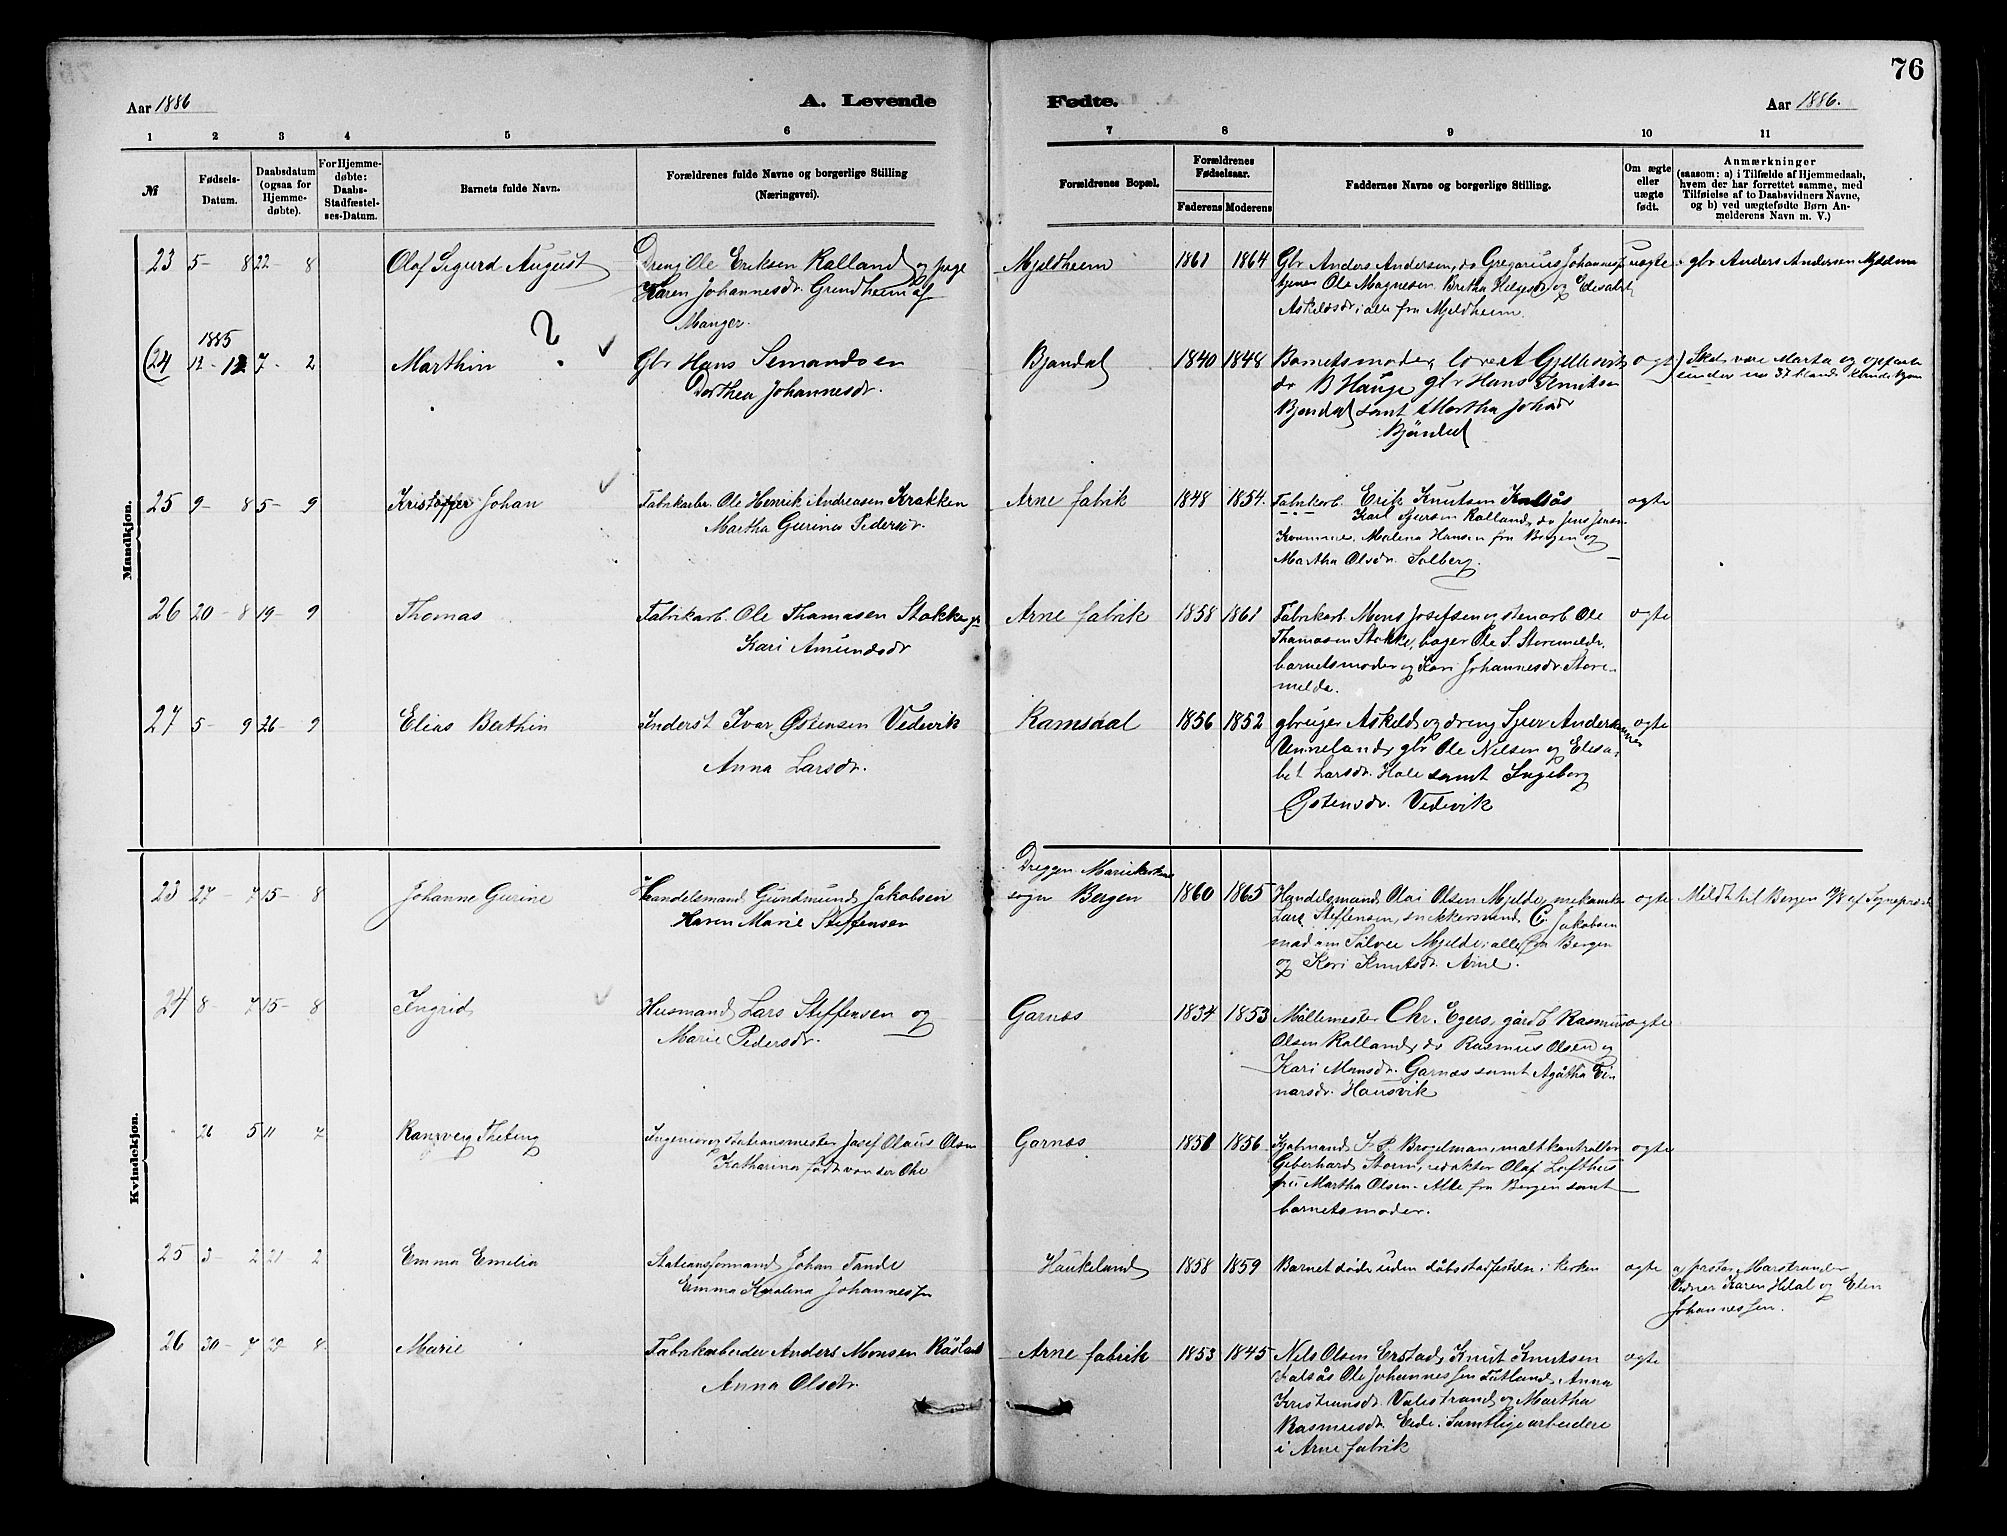 76
Aar 1886
A. Levende
Fødte.
Aar 1886.
1 2 3 4 5 6 7 8 9 10 11
№
Fødsels-
Datum.
Daabsdatum
(ogsaa for
Hjemme-
døbte).
For Hjemme-
døbte:
Daabs-
Stadfæstel-
ses-Datum.
Barnets fulde Navn.
Forældrenes fulde Navne og borgerlige Stilling
(Næringsvei).
Forældrenes Bopæl.
Forældrenes
Fødselsaar.
Faderens Moderens
Faddernes Navne og borgerlige Stilling.
Om ægte
eller
uægte
født.
Anmærkninger
(saasom: a) i Tilfælde af Hjemmedaab,
hvem der har forrettet samme, med
Tilføielse af to Daabsvidners Navne,
og b) ved uægtefødte Børn An-
melderens Navn m. V.)
Mandkjøn.
23 5- 8 22- 8
Olaf Sigurd August
Dreng Ole Eriksen Kalland og pige
Karen Johannesdr. Grundheim af
Manger.
Mjeldheim
1861 1864
Gbr Anders Andersen, do Gregarius Johannes
tjener Ole Magnesen Bretha Helgesdr og Elisabet
Askeldsdr alle fra Mjeldheim.
uægte
gbr Anders Andersen
(24 1885
12-12 7- 2
Marthin ?
Gbr Hans Semandsen
Dorthea Johannesdr.
Bjøndal
1840 1848
Barnets moder, lærer A Gjellesvik
do B Hauge gbr Hans Knutsen
Bjøndal samt Martha Johsdr
Bjöndal
ægte
Skal være Marta og opførte
under no 37 blandt Kvindekjøn
25 9- 8 5- 9
Kristoffer Johan
Fabrikarbr. Ole Henrik Andreasen Krakken
Martha Gurina Pedersdr.
Arne fabrik
1848 1854.
Fabrikarb. Erik Knutsen Kalsås
Karl Sjursen Kalland, do Jens Jensen
Kvamme, Malena Hansen fra Bergen og
Martha Olsdr. Solberg.
ægte
26 20- 8 19- 9
Thomas
Fabrikarb. Ole Thomasen Stokke
Kari Amundsdr
Arne fabrik
1858 1861
Fabrikarb. Mons Josefsen og stenarb Ole
Thomasen Stokke, bager Ole S. Storemelde,
barnets moder og Kari Johannesdr Store-
melde.
ægte
27 5- 9 26- 9
Elias Berthin
Inderst Ivar Østensen Vedvik
Anna Larsdr.
Ramsdal
1856 1852
gbruger Askeld og dreng Sjur Andersønner
Unneland, gbr Ole Nilsen og Elisa-
bet Larsdr. Hole samt Ingeborg
Østensdr. Vedvik
ægte
Kvindekjøn.
23 27- 7 15- 8
Johanne Gurine
Handelsmand Gundmund Jakobsen
Karen Marie Steffensen
Dreggen Mariekirkens
sogn Bergen
1860 1865
Handelsmand Olai Olsen Mjelde, mekaniker
Lars Steffensen, snikkersvend C. Jakobsen
madam Sølvei Mjelde, alle fra Bergen
og Kari Knutsdr. Arne.
ægte
Meldt til Bergen af Sognepræst
24 8- 7 15- 8
Ingrid
Husmand Lars Steffensen og
Marie Pedersdr.
Garnæs
1834 1853
Møllemester Chr. Egers, gårdb Rasmus
Olsen Kalland, do Rasmus Olsen og
Kari Monsdr. Garnæs samt Agåtha Ei-
narsdr. Hausvik
ægte
26 5 11 7
Ranveig Theting
Ingeniør og stationsmester Josef Olaus Olsen
Katharina født von der Ohe
Garnæs
1851 1856
Kjøbmand J. P. Brøgelman, maltkontrollør
Geberhard Storm, redaktør Olaf Lofthus
frü Martha Olsen. Alle fra Bergen samt
barnets moder.
ægte
25 3- 2 21- 2
Emma Emilia
Stationsformand Johan Tande
Emma Karolina Johannessen
Haukeland
1858 1859
Barnet døde uden dåbsstadfestelse i kirken
ægte
af prosten Marstrander
Vidner Karen Hilal og Elen
Johannessen.
26 30- 7 29- 8
Marie
Fabrikarbeider Anders Monsen Råsland
Anna Olsdr.
Arne fabrik
1853 1845
Nils Olsen Erstad, Knut Knutsen
Kalsås Ole Johannessen Titland, Anna
Kristiansdr. Valestrand og Martha
Rasmusdr. Eide. Samtlige arbeidere
i Arne fabrik
ægte